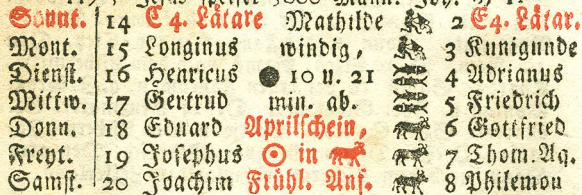 Sonnt. 14 C 4. Lätare Mathilde 2 E4. Lätar.
Mont. 15 Longinus windig, 3 Kunigunde
Dienst. 16 Henricus ● 10 u. 21 4 Adrianus
Mittw. 17 Gertrud min. ab. 5 Friedrich
Donn. 18 Eduard Aprilschein, 6 Gottfried
Freyt. 19 Josephus ☉ in 7 Thom. Aq.
Samst. 20 Joachim Frühl. Anf. 8 Philemon